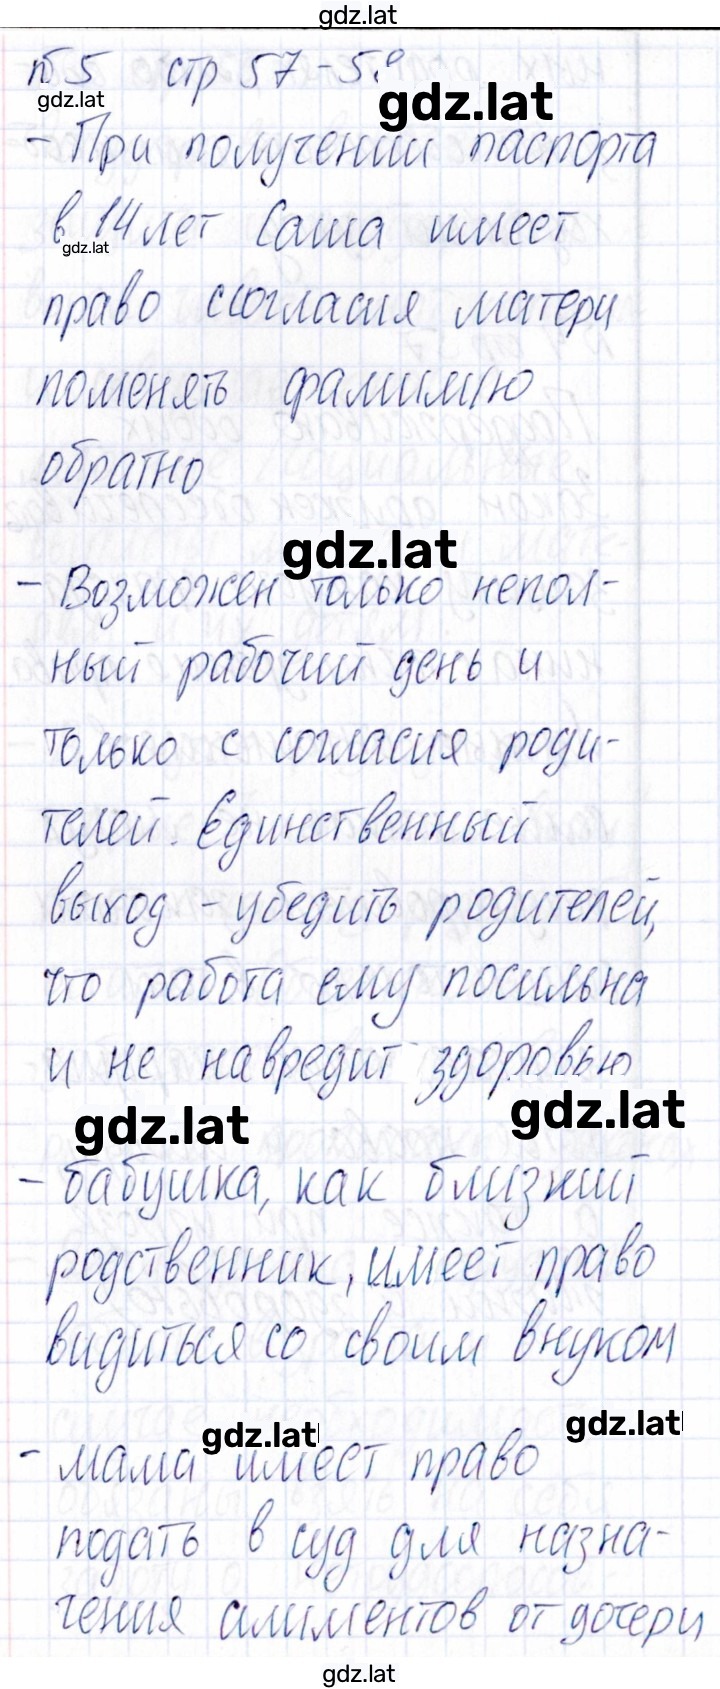 gdz.lat
п5 стр 57-58
gdz.lat
gdz.lat
- При получении паспорта
в 14 лет Саша имеет
gdz.lat
право ссогласия матери
поменять фамилию
обратно
gdz.lat
- Возможен только непол-
ный рабочий день и
только с согласия роди-
телей. Единственный
выход - убедить родителей,
что работа ему посильна
и не навредит здоровью
gdz.lat
gdz.lat
- бабушка, как близкий
родственник, имеет право
видиться со своим внуком
gdz.lat
gdz.lat
- мама имеет право
подать в суд для назна-
чения алиментов от дочери
gdz.lat